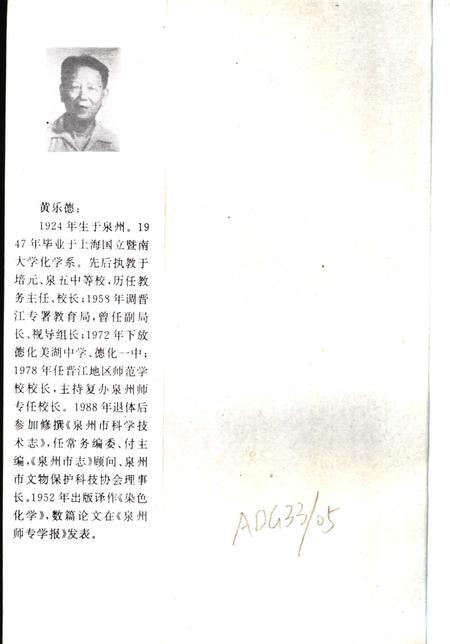 黄乐德：
1924年生于泉州。19
47年毕业于上海国立暨南
大学化学系。先后执教于
培元、泉五中等校，历任教
务主任、校长；1958年调晋
江专署教育局，曾任副局
长、视导组长；1972年下放
德化美湖中学、德化一中；
1978年任晋江地区师范学
校校长，主持复办泉州师
专任校长。1988年退体后
参加修撰《泉州市科学技
术志》，任常务编委、付主
编，《泉州市志》顾问、泉州
市文物保护科技协会理事
长。1952年出版译作《染色
化学》，数篇论文在《泉州
师专学报》发表。
ADG33/05